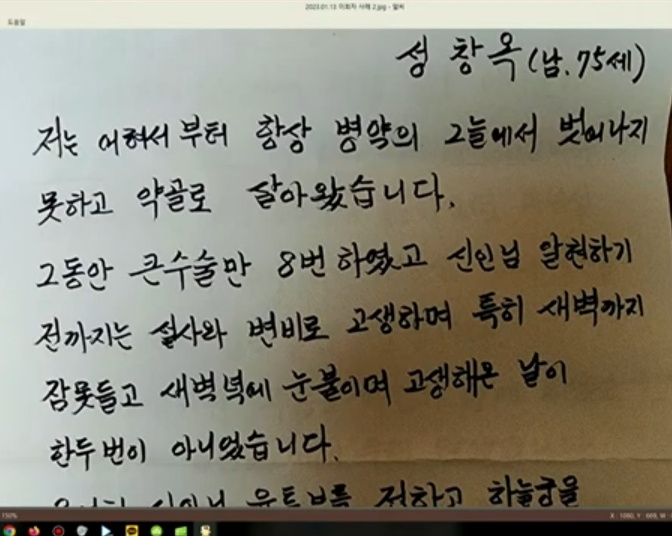 2023.01.13 이희자 사례 2.jpg - 알씨
도움말
성창옥(남. 75세)
저는 어려서부터 항상 병약의 그늘에서 벗어나지
못하고 약골로 살아왔습니다.
그동안 큰수술만 8번 하였고 신인님 알현하기
전까지는 설사와 변비로 고생하며 특히 새벽까지
잠못들고 새벽녁에 눈붙이며 고생해온 날이
한두번이 아니었습니다.
유튜브를 접하고 하늘궁을
150%